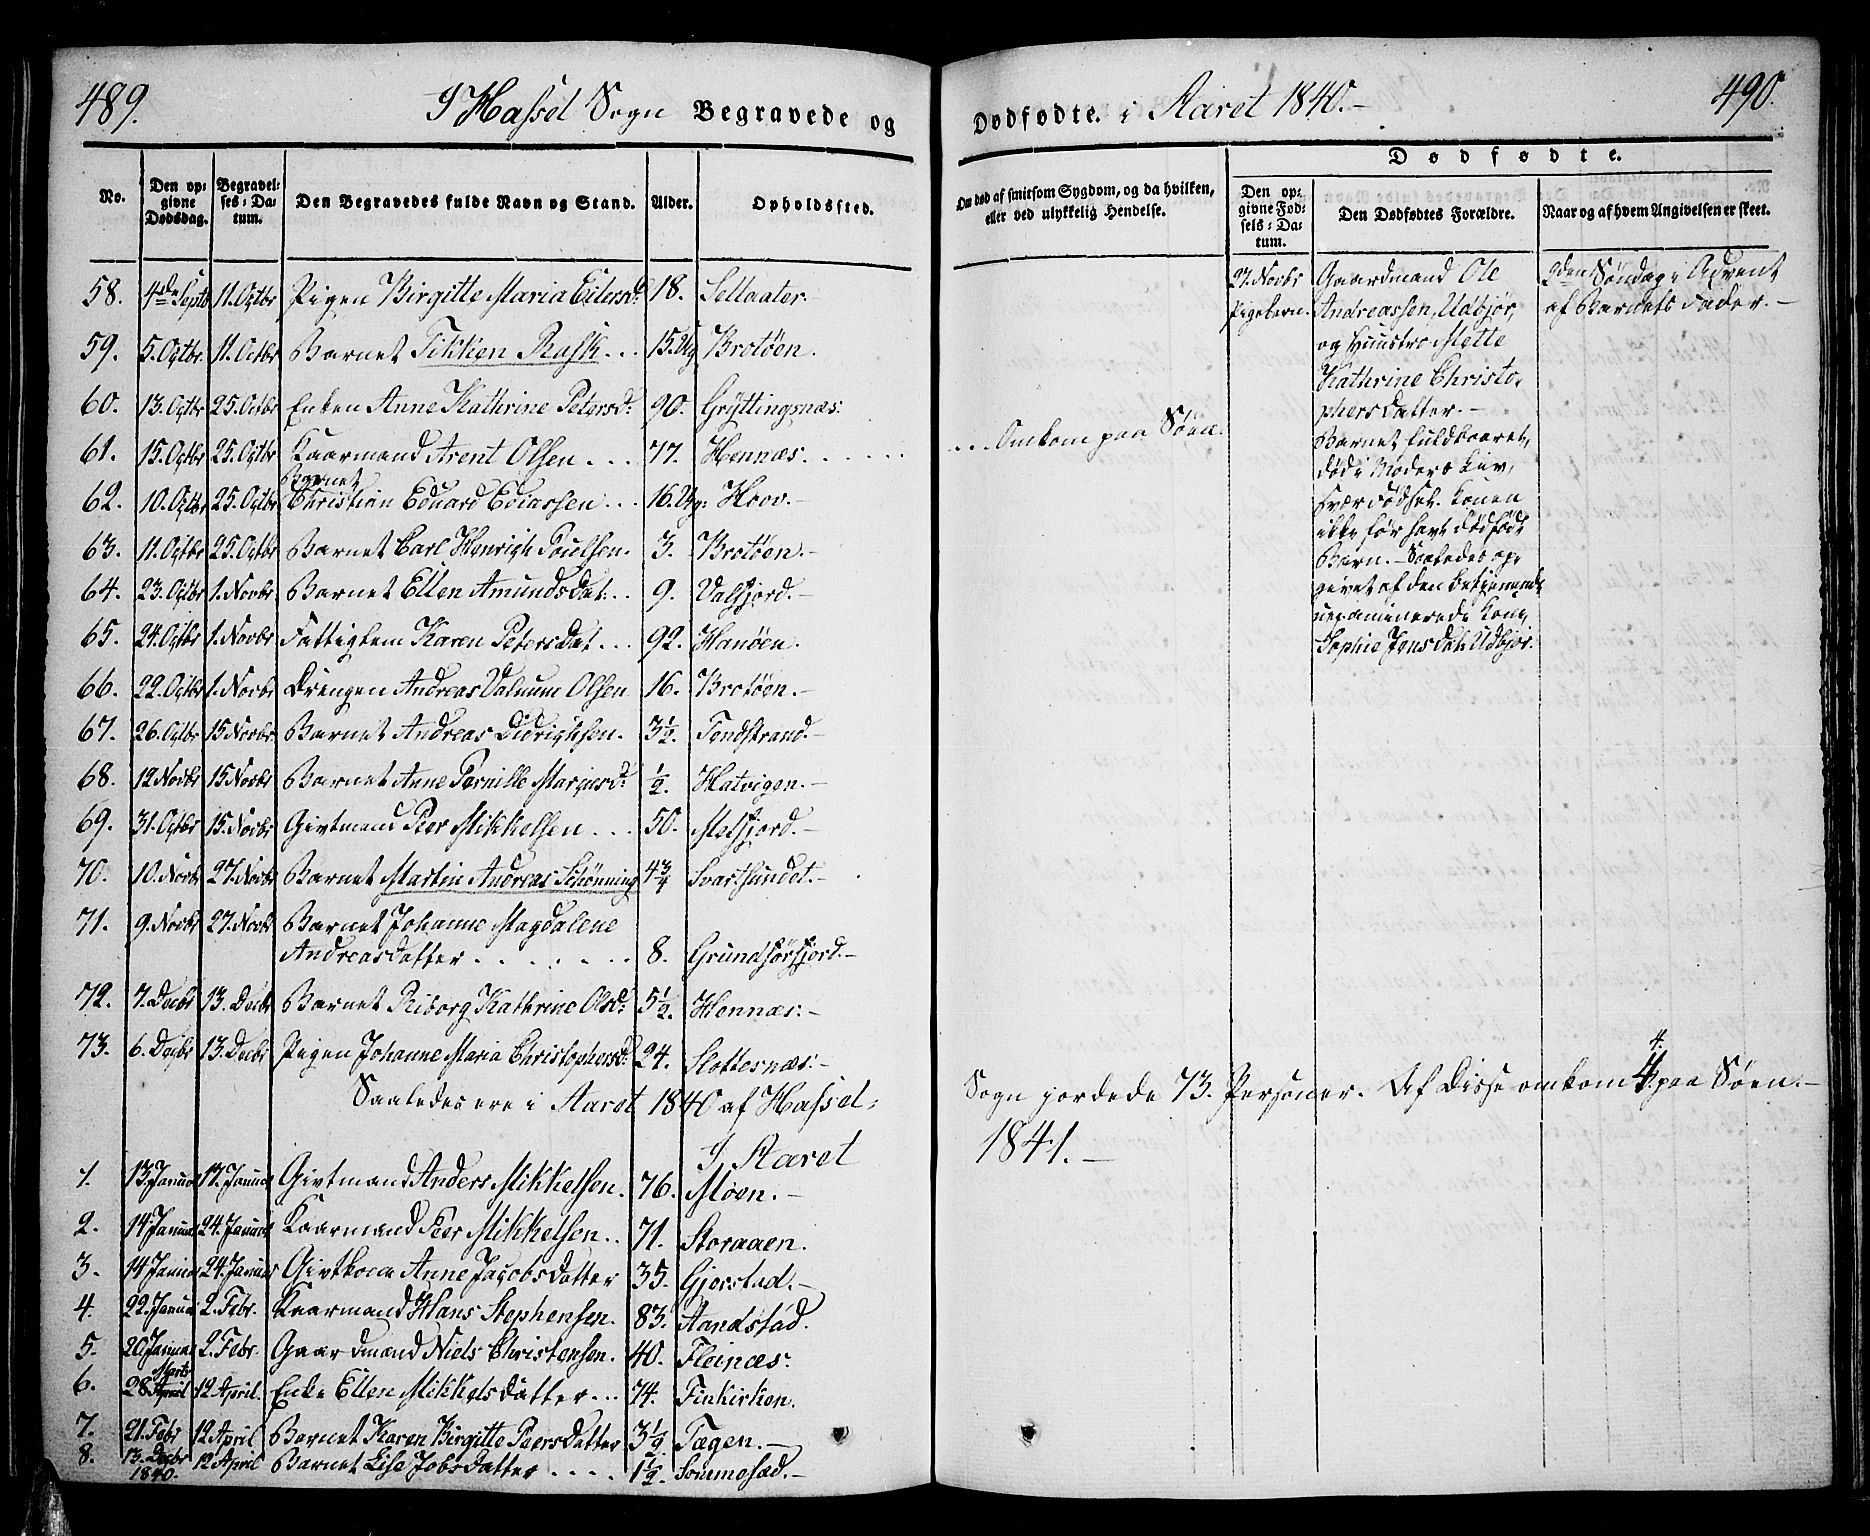 489.
I Hassel Sogn Begravede og
Dødfødte. i Aaret 1840.-
490.
No.
Den opgivne Dødsdag.
Begravelses-Datum.
Den Begravedes fulde Navn og Stand.
Alder.
Opholdssted.
Om død af smitsom Sygdom, og da hvilken, eller ved ulykkelig Hendelse.
Dødfødte.
Den opgivne Fødsels-Datum.
Den Dødfødtes Forældre.
Naar og af hvem Angivelsen er skeet.
58. 4de Septb 11. Octbr Pigen Birgitte Maria Eilersd: 18. Sellaater.
59. 5. Octbr. 11. Octbr Barnet Fikken Rask . . . 15. Ug Brotøen.
60. 13. Octbr 25. Octbr Enken Anne Kathrine Petersd: 90. Gryttingsnæs:
61. 15. Octbr 25. Octbr Kaarmand Arent Olsen . . . 77. Hennæs. . . . . . . . . . Omkom paa Søen.
62. 10. Octbr 25. Octbr Barnet Christian Eduard Ediassen . . . 16. Ug: Hoov.-
63. 11. Octbr 25. Octbr Barnet Carl Henrigh Poulsen. 3. Brotøen.-
64. 23. Octbr 1. Novbr Barnet Ellen Amundsdat: . . 9. Valfjord.-
65. 24. Octbr 1. Novbr Fattiglem Karen Petersdat . . . 92. Hanøen.
66. 22. Octbr 1. Novbr Drengen Andreas Olsen 16. Brotøen.-
67. 26. Octbr 15 Novbr Barnet Andreas Didrichsen. 3½. Fondstrand.-
68. 12 Novbr 15 Novbr Barnet Anne Pernille Mariusd: ½. Hatvigen.-
69. 31. Octbr 15. Novbr Givtmand Peer Mikkelsen . . . 50. Melfjord.-
70. 10. Novbr 27. Novbr Barnet Martin Andreas Schønning 4¾ Svartsundet.-
71. 9. Novbr 27. Novbr Barnet Johanne Magdalene
Andreasdatter . . . . . . . 8. Grundførfjord.-
72. 7. Decbr 13. Decbr Barnet Riborg Kathrine Olsd: 5½. Hennæs:-
73. 6. Decbr 13. Decbr Pigen Johanne Maria Christophersd: 24. Slottesnæs:-
Saaledes ere i Aaret 1840 af Hassel:
Sogn jordede 73. Personer. Af disse omkom 4. paa Søen.-
I Aaret
1841.-
1. 13. Januar 17. Januar Givtmand Anders Mikkelsen. 76. Møen.-
2. 14 Januar 24. Januar Kaarmand Peer Mikkelsen. . 71. Storaaen.
3. 14 Januar 24. Januar Givtkone Anne Jacobsdatter 35. Gjerstad.-
4. 22. Januar 2. Febr. Kaarmand Hans Stephensen. 83. Aandstad.
5. 20 Januar 2. Febr. Gaardmand Niels Christensen. 40. Fleinæs:
6. 28 Marts April 12 April. Enke Ellen Mikkelsdatter . . . 74. Finkirken.
7. 21. Febr 12 April Barnet Karen Birgitte Peersdatter 3½. Tøgen.-
8. 13. Decbr 1840. 12 April Barnet Lise Jobsdatter . . . . 1½. Sommosæd.-
27. Novbr
Pigebarn.
Gaardmand Ole
Andreassen, Udbjør,
og Huustro Mette
Kathrine Christo-
phersdatter.-
Barnet fuldbaaret,
død i Moders Liv,
svær Fødsel. Konen
ikke før havt dødfødt
Barn.- Saaledes op-
givet af den betjenende
uexaminerede Kone
Sophie Jensdat: Udbjør.
2den Søndag i Advent
af Barnets Fader.-
4.